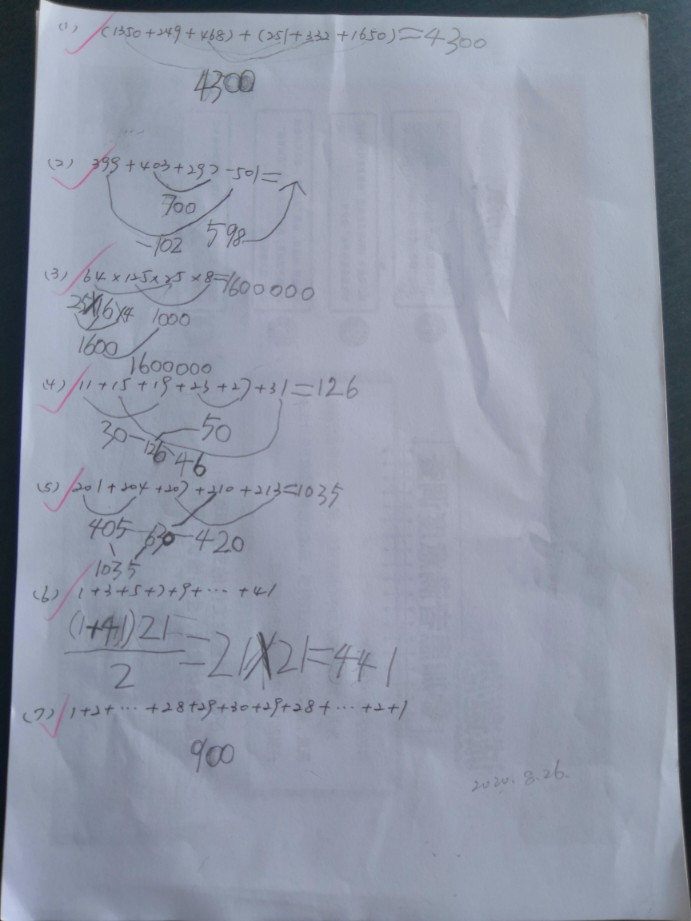 (1) (1350+249+468)+(251+332+1650)=4300
4300
(2) 399+403+297-501=
700
-102 598
(3) 64×125×25×8=1600000
25×16×4 1000
1600
1600000
(4) 11+15+19+23+27+31=126
30 50
126 46
(5) 201+204+207+210+213=1035
405 630 420
1035
(6) 1+3+5+7+9+…+41
(1+41)21
2
=21×21=441
(7) 1+2+…+28+29+30+29+28+…+2+1
900
2020.8.26.